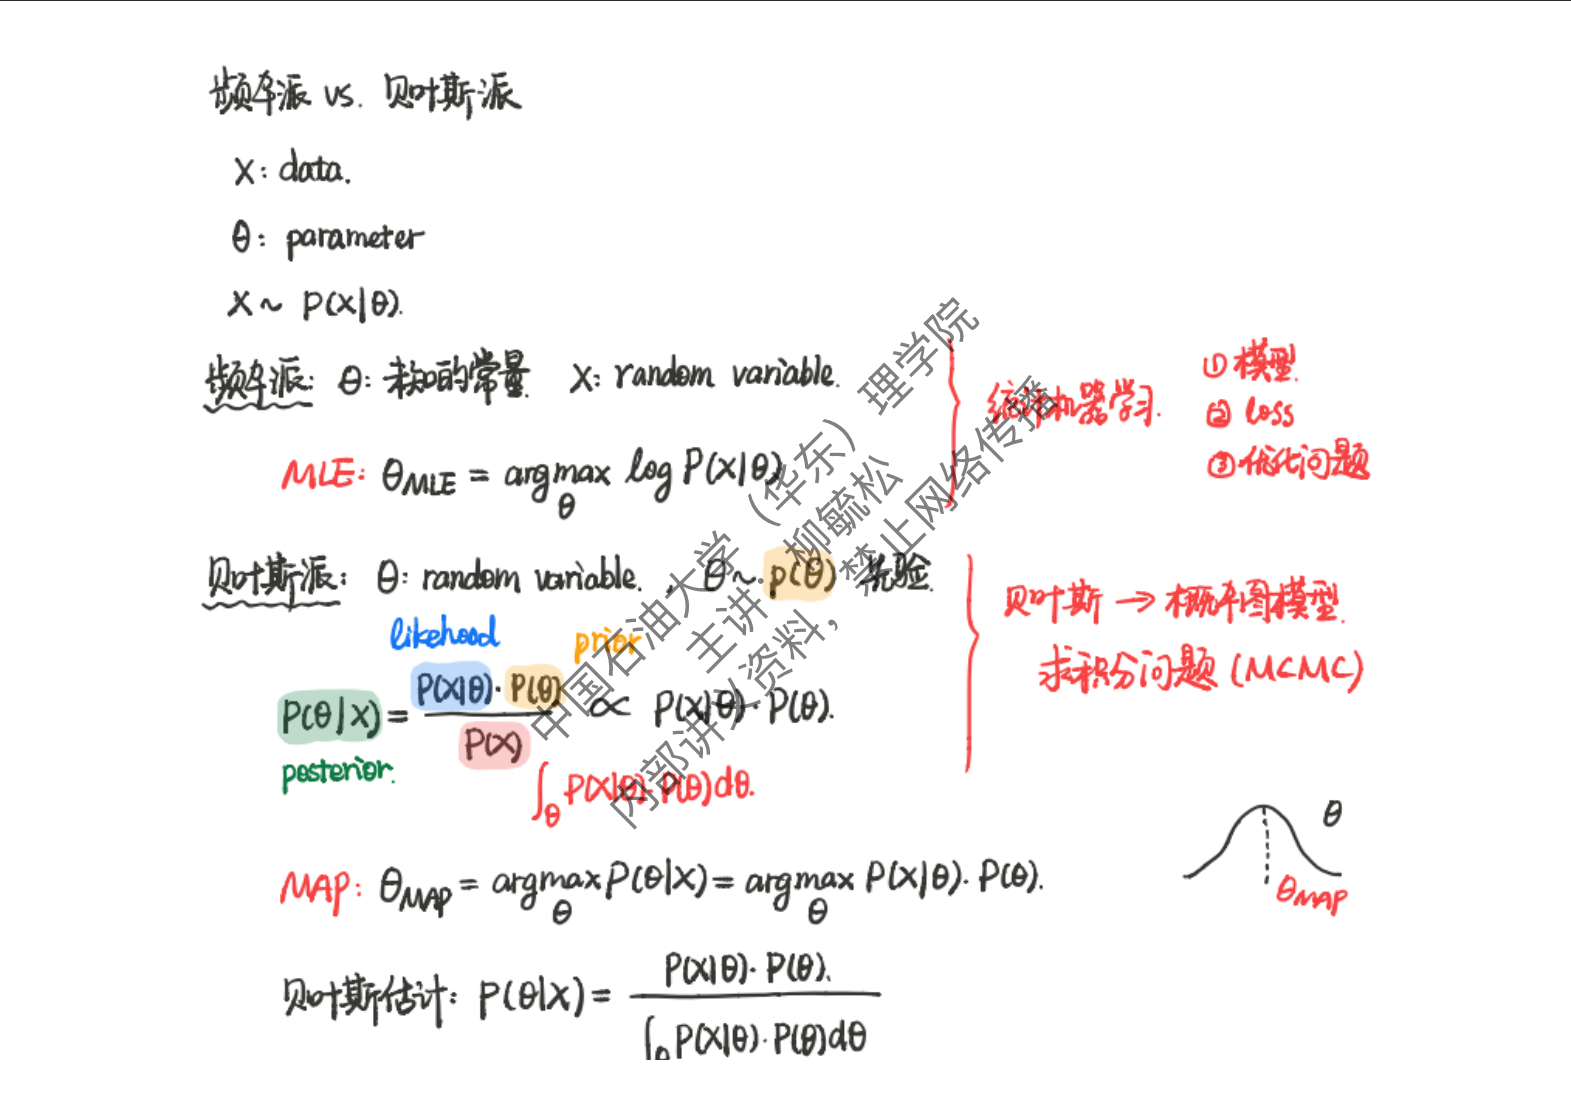 频率派 vs. 贝叶斯派
X: data.
θ: parameter
X ~ P(X|θ).
频率派: θ: 未知的常量 X: random variable.
MLE: θ_MLE = argmax_θ log P(X|θ)
统计机器学习.
① 模型
② loss
③ 优化问题
贝叶斯派: θ: random variable. , θ ~ p(θ) 先验.
likehood
prior
P(θ|X) = P(X|θ)·P(θ) / P(X) ∝ P(X|θ)·P(θ).
posterior.
∫_θ P(X|θ)·P(θ)dθ.
贝叶斯 → 概率图模型
求积分问题 (MCMC)
θ
θ_MAP
MAP: θ_MAP = argmax_θ P(θ|X) = argmax_θ P(X|θ)·P(θ).
贝叶斯估计: P(θ|X) = P(X|θ)·P(θ). / ∫_θ P(X|θ)·P(θ)dθ
中国石油大学（华东）理学院
主讲：柳毓松
内部讲义资料，禁止网络传播